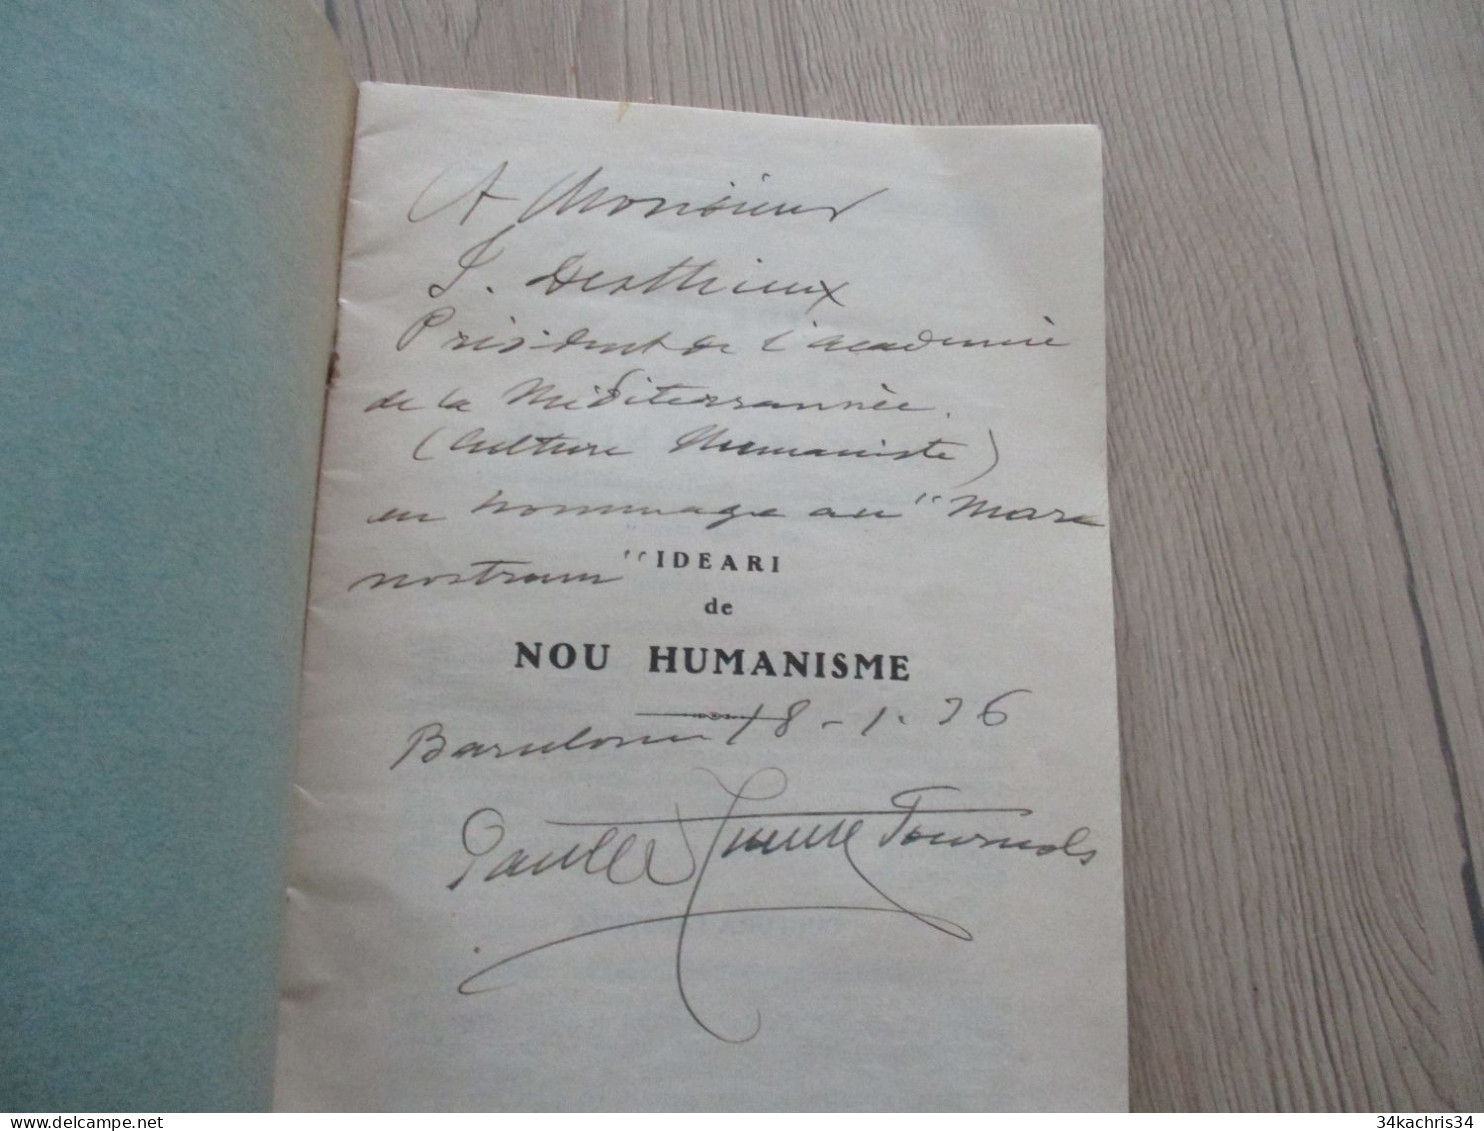 A Monsieur
J. Desthieux
Président de l'académie
de la Méditerrannée.
(Culture Humaniste)
en hommage au "Mare
nostrum"
IDEARI
de
NOU HUMANISME
Barcelone 18-1-36
Tournols
delcampe.net
34kachris34